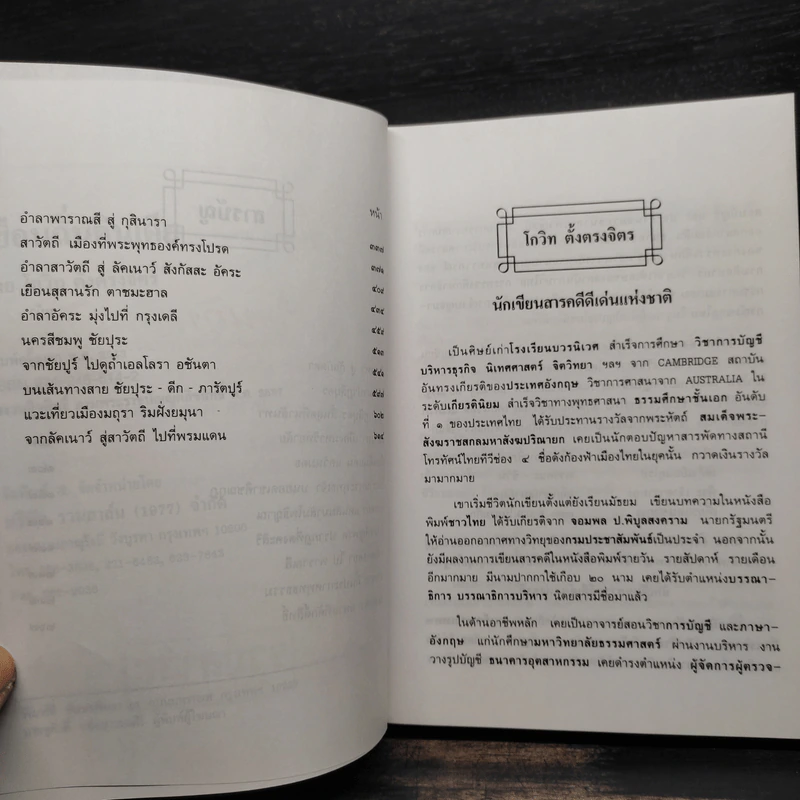 หน้า
อำลาพาราณสี สู่ กุสินารา ๓๓๗
สาวัตถี เมืองที่พระพุทธองค์ทรงโปรด ๓๗๑
อำลาสาวัตถี สู่ ลัคเนาว์ สังกัสสะ อัคระ ๔๐๙
เยือนสุสานรัก ตาชมะฮาล ๔๓๔
อำลาอัคระ มุ่งไปที่ กรุงเดลี ๔๕๔
นครสีชมพู ชัยปุระ ๕๑๓
จากชัยปูร์ ไปดูถ้ำเอลโลรา อชันตา ๕๔๑
บนเส้นทางสาย ชัยปุระ - ดีก - ภารัตปูร์ ๕๘๘
แวะเที่ยวเมืองมถุรา ริมฝั่งยมุนา ๖๐๒
จากลัคเนาว์ สู่สาวัตถี ไปที่พรมแดน ๖๑๔
โกวิท ตั้งตรงจิตร
นักเขียนสารคดีดีเด่นแห่งชาติ
เป็นศิษย์เก่าโรงเรียนบวรนิเวศ สำเร็จการศึกษา วิชาการบัญชี
บริหารธุรกิจ นิเทศศาสตร์ จิตวิทยา ฯลฯ จาก CAMBRIDGE สถาบัน
อันทรงเกียรติของประเทศอังกฤษ วิชาการศาสนาจาก AUSTRALIA ใน
ระดับเกียรตินิยม สำเร็จวิชาทางพุทธศาสนา ธรรมศึกษาชั้นเอก อันดับ
ที่ ๑ ของประเทศไทย ได้รับประทานรางวัลจากพระหัตถ์ สมเด็จพระ-
สังฆราชสกลมหาสังฆปริณายก เคยเป็นนักตอบปัญหาสารพัดทางสถานี
โทรทัศน์ไทยทีวีช่อง ๔ ชื่อดังก้องฟ้าเมืองไทยในยุคนั้น กวาดเงินรางวัล
มามากมาย
เขาเริ่มชีวิตนักเขียนตั้งแต่ยังเรียนมัธยม เขียนบทความในหนังสือ
พิมพ์ชาวไทย ได้รับเกียรติจาก จอมพล ป.พิบูลสงคราม นายกรัฐมนตรี
ให้อ่านออกอากาศทางวิทยุของกรมประชาสัมพันธ์เป็นประจำ นอกจากนั้น
ยังมีผลงานการเขียนสารคดีในหนังสือพิมพ์รายวัน รายสัปดาห์ รายเดือน
อีกมากมาย มีนามปากกาใช้เกือบ ๒๐ นาม เคยได้รับตำแหน่งบรรณา-
ธิการ บรรณาธิการบริหาร นิตยสารมีชื่อมาแล้ว
ในด้านอาชีพหลัก เคยเป็นอาจารย์สอนวิชาการบัญชี และภาษา-
อังกฤษ แก่นักศึกษามหาวิทยาลัยธรรมศาสตร์ ผ่านงานบริหาร งาน
วางรูปบัญชี ธนาคารอุตสาหกรรม เคยดำรงตำแหน่ง ผู้จัดการผู้ตรวจ-